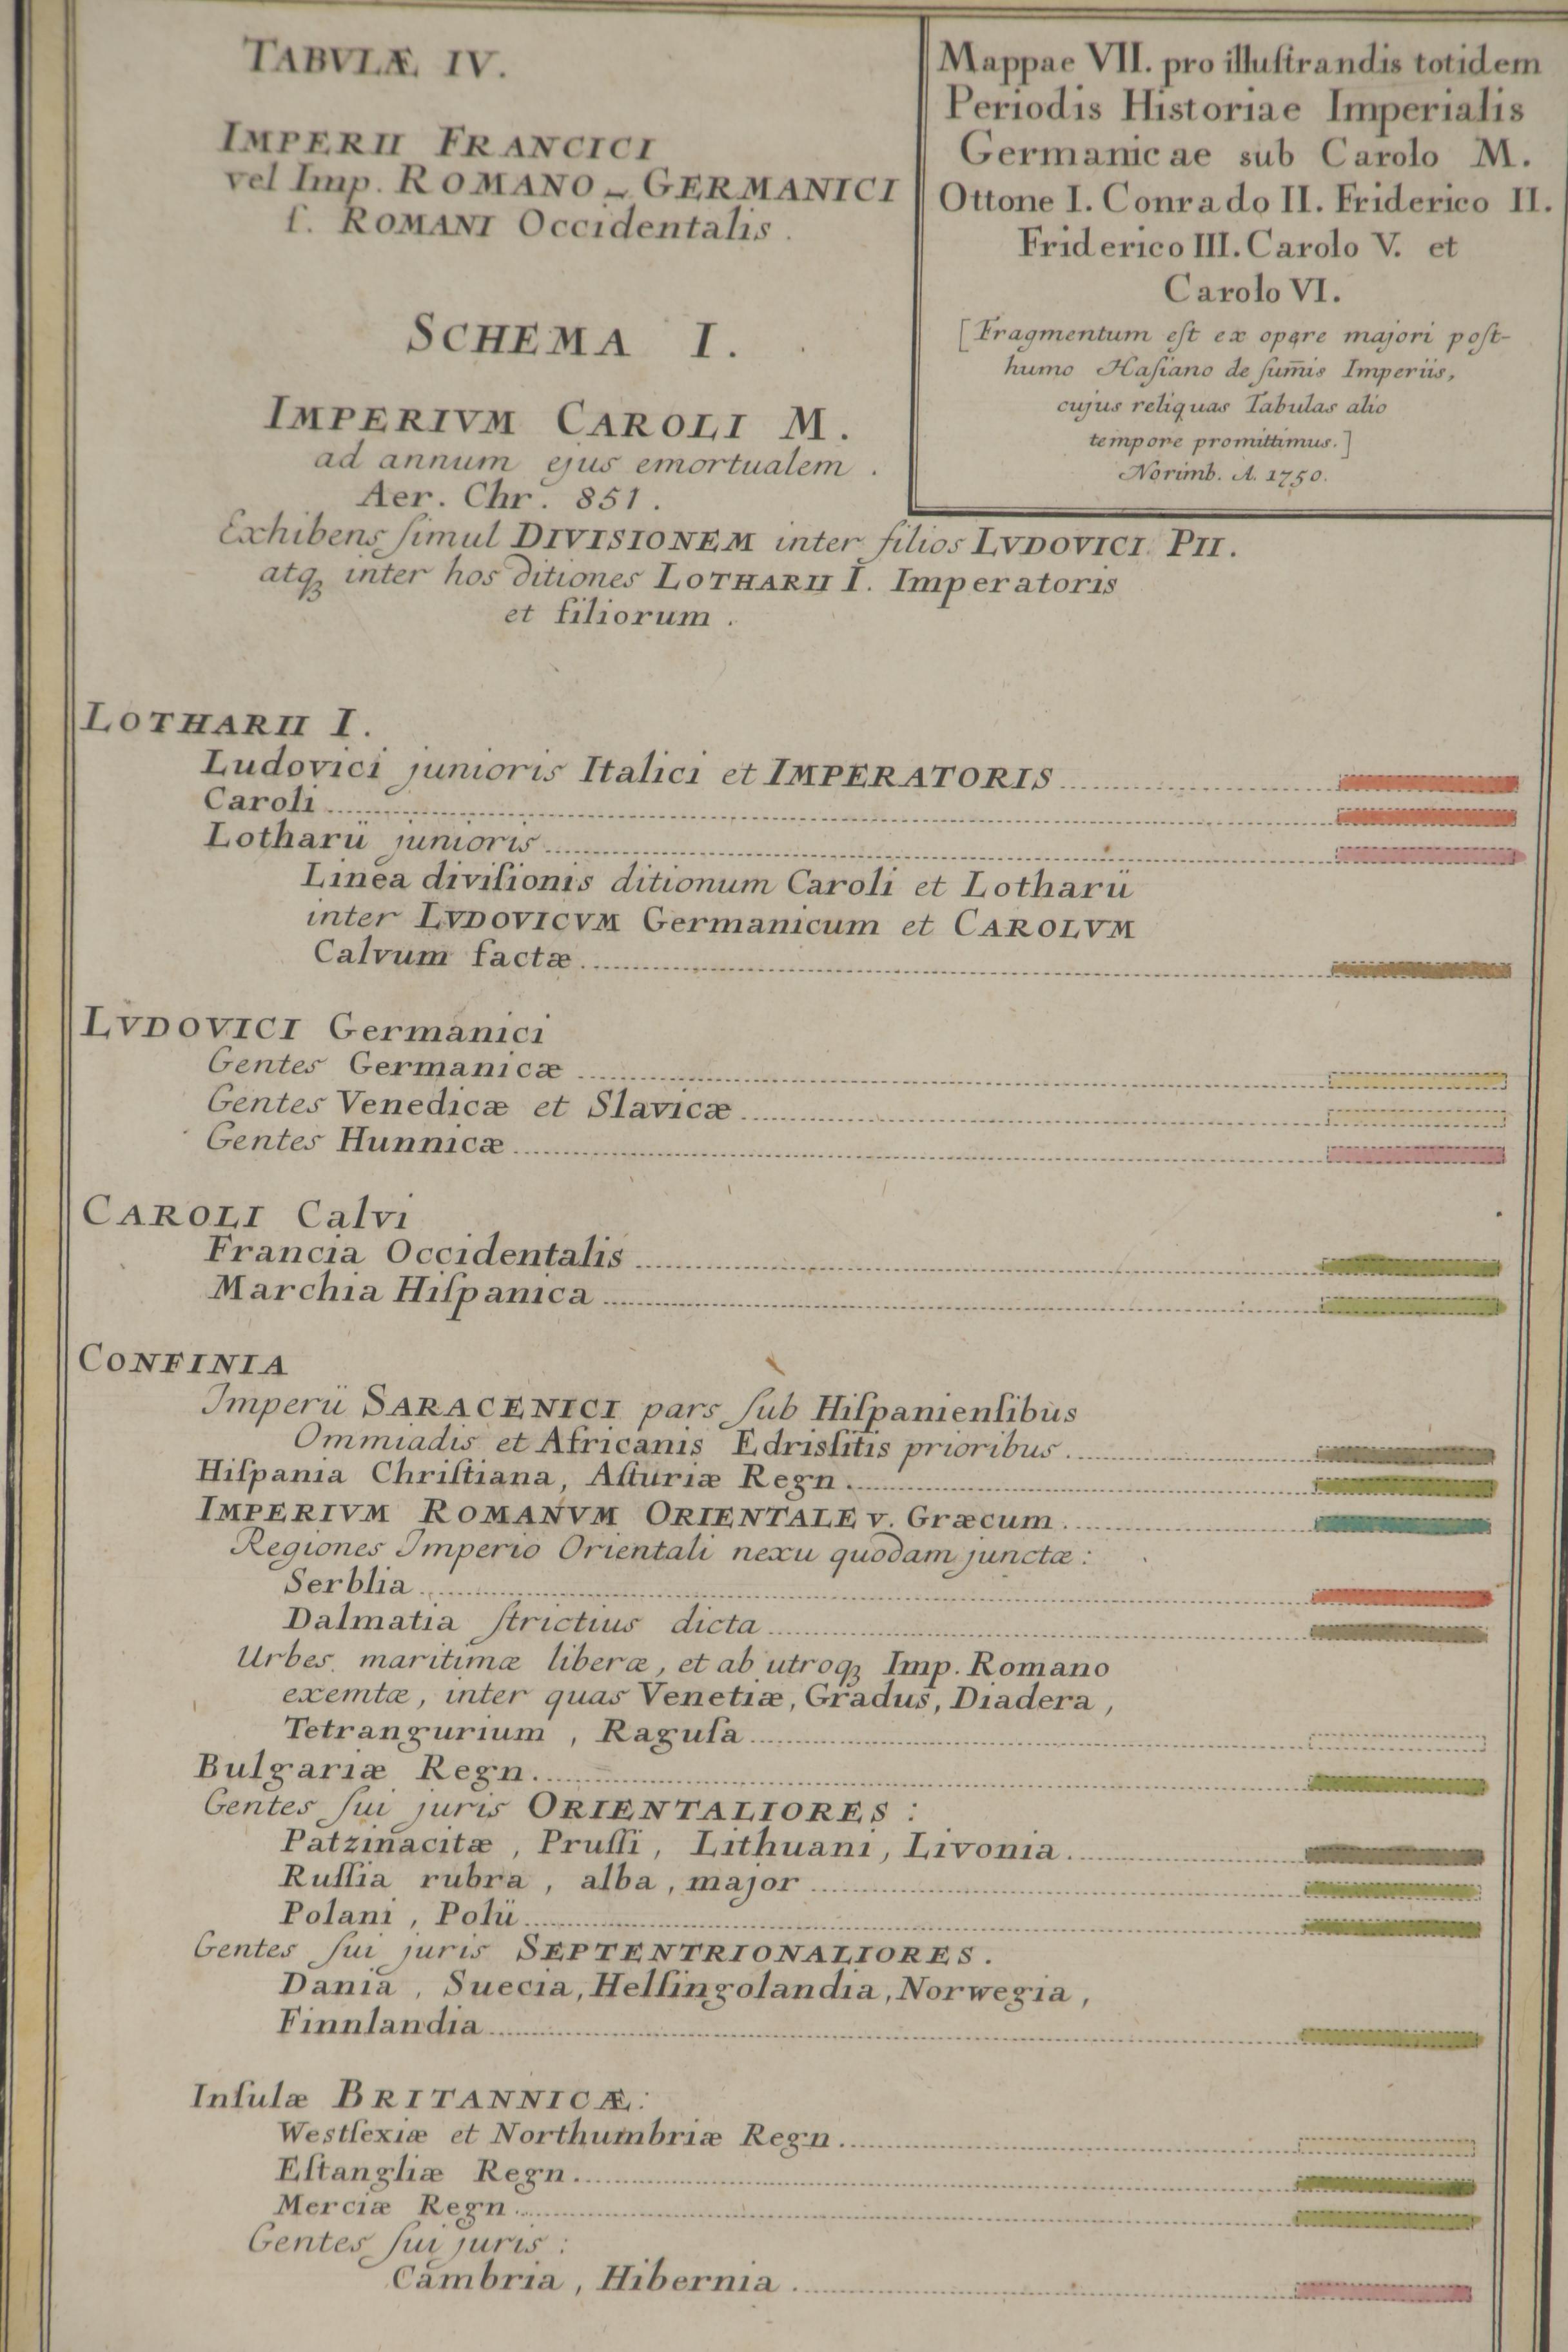 TABVLÆ IV.
IMPERII FRANCICI
vel Imp. ROMANO-GERMANICI
ſ. ROMANI Occidentalis.
Mappae VII. pro illuſtrandis totidem
Periodis Historiae Imperialis
Germanicae sub Carolo M.
Ottone I. Conrado II. Friderico II.
Friderico III. Carolo V. et
Carolo VI.
[Fragmentum eſt ex opere majori poſt-
humo Haſiano de ſum̄is Imperiis,
cujus reliquas Tabulas alio
tempore promittimus.]
Norimb. A. 1750.
SCHEMA I.
IMPERIVM CAROLI M.
ad annum ejus emortualem.
Aer. Chr. 851.
Exhibens ſimul DIVISIONEM inter filios LVDOVICI PII.
atqꝫ inter hos ditiones LOTHARII I. Imperatoris
et filiorum.
LOTHARII I.
Ludovici junioris Italici et IMPERATORIS
Caroli
Lotharii junioris
Linea diviſionis ditionum Caroli et Lotharii
inter LVDOVICVM Germanicum et CAROLVM
Calvum factæ
LVDOVICI Germanici
Gentes Germanicæ
Gentes Venedicæ et Slavicæ
Gentes Hunnicæ
CAROLI Calvi
Francia Occidentalis
Marchia Hiſpanica
CONFINIA
Imperii SARACENICI pars ſub Hiſpanienſibus
Ommiadis et Africanis Edrisſitis prioribus.
Hiſpania Chriſtiana, Aſturiæ Regn.
IMPERIVM ROMANVM ORIENTALE v. Græcum.
Regiones Imperio Orientali nexu quodam junctæ:
Serblia
Dalmatia ſtrictius dicta
Urbes maritimæ liberæ, et ab utroqꝫ Imp. Romano
exemtæ, inter quas Venetiæ, Gradus, Diadera,
Tetrangurium, Raguſa
Bulgariæ Regn.
Gentes ſui juris ORIENTALIORES:
Patzinacitæ, Pruſſi, Lithuani, Livonia.
Ruſſia rubra, alba, major
Polani, Polii
Gentes ſui juris SEPTENTRIONALIORES.
Dania, Suecia, Helſingolandia, Norwegia,
Finnlandia
Inſulæ BRITANNICÆ:
Westſexiæ et Northumbriæ Regn.
Eſtangliæ Regn.
Merciæ Regn.
Gentes ſui juris:
Cambria, Hibernia.